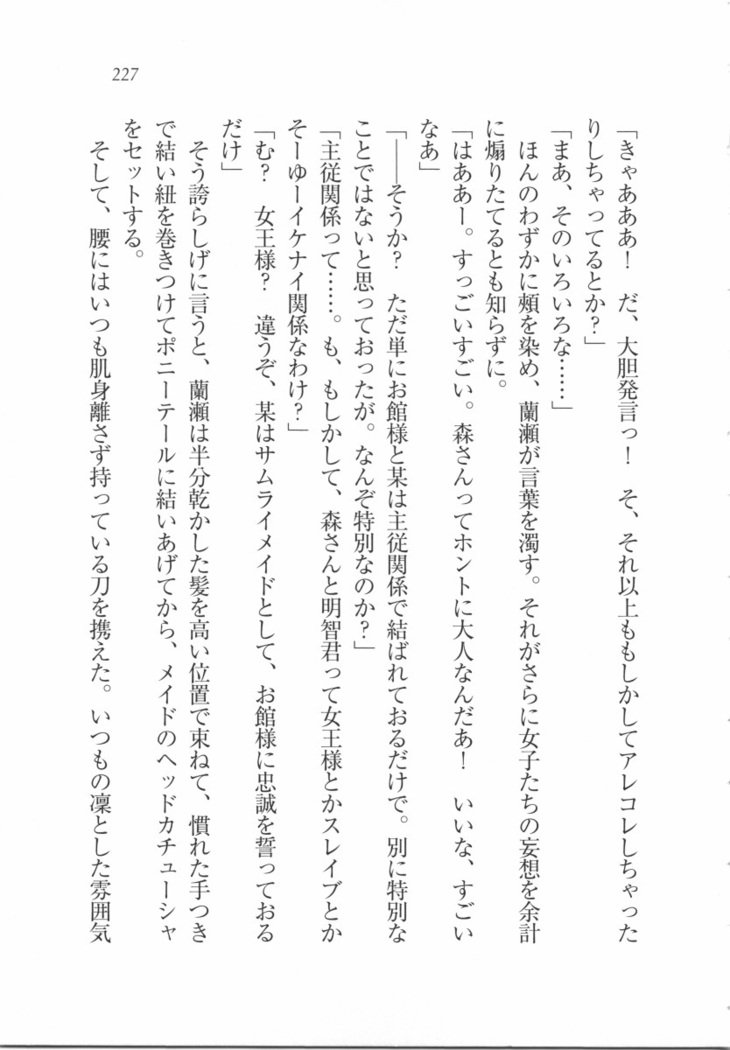 227
「きゃあああ！　だ、大胆発言っ！　そ、それ以上ももしかしてアレコレしちゃった
りしちゃってるとか？」
「まあ、そのいろいろな……」
　ほんのわずかに頬を染め、蘭瀬が言葉を濁す。それがさらに女子たちの妄想を余計
に煽りたてるとも知らずに。
「はああー。すっごいすごい。森さんってホントに大人なんだあ！　いいな、すごい
なあ」
「――そうか？　ただ単にお館様と某は主従関係で結ばれておるだけで。別に特別な
ことではないと思っておったが。なんぞ特別なのか？」
「主従関係って……。も、もしかして、森さんと明智君って女王様とかスレイブとか
そーゆーイケナイ関係なわけ？」
「む？　女王様？　違うぞ、某はサムライメイドとして、お館様に忠誠を誓っておる
だけ」
　そう誇らしげに言うと、蘭瀬は半分乾かした髪を高い位置で束ねて、慣れた手つき
で結い紐を巻きつけてポニーテールに結いあげてから、メイドのヘッドカチューシャ
をセットする。
　そして、腰にはいつも肌身離さず持っている刀を携えた。いつもの凜とした雰囲気